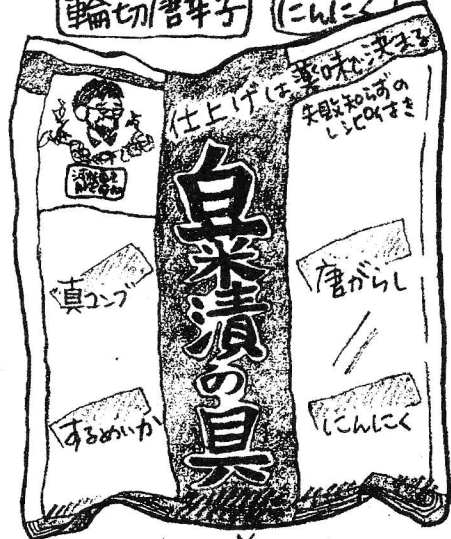 輪切り唐辛子
にんにく
仕上げは薬味で決まる
失敗知らずの
レシピつき
白菜漬の具
真コンブ
唐がらし
するめいか
にんにく